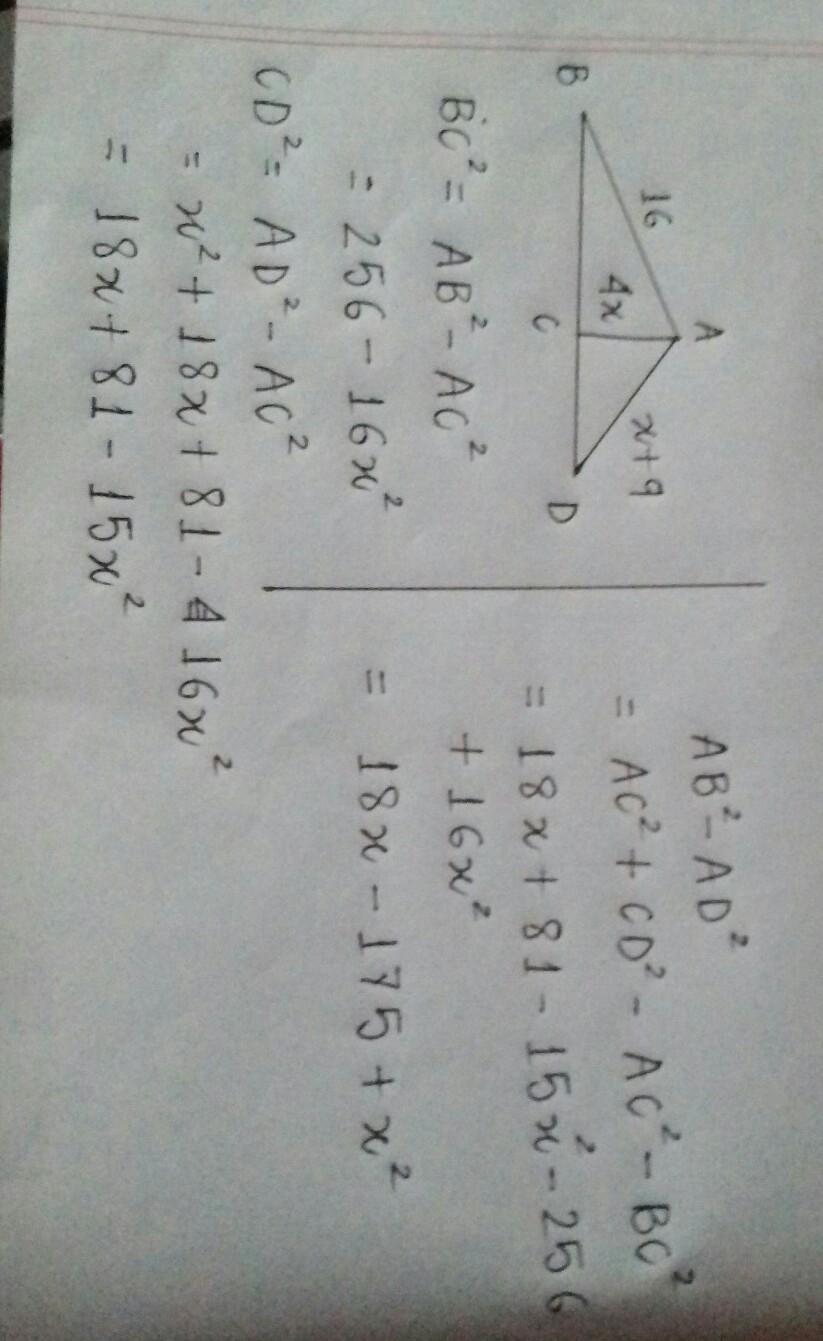 A
16
4x
x+9
B
C
D
BC² = AB² - AC²
= 256 - 16x²
CD² = AD² - AC²
= x² + 18x + 81 - 16x²
= 18x + 81 - 15x²
AB² - AD²
= AC² + CD² - AC² - BC²
= 18x + 81 - 15x² - 256
+ 16x²
= 18x - 175 + x²